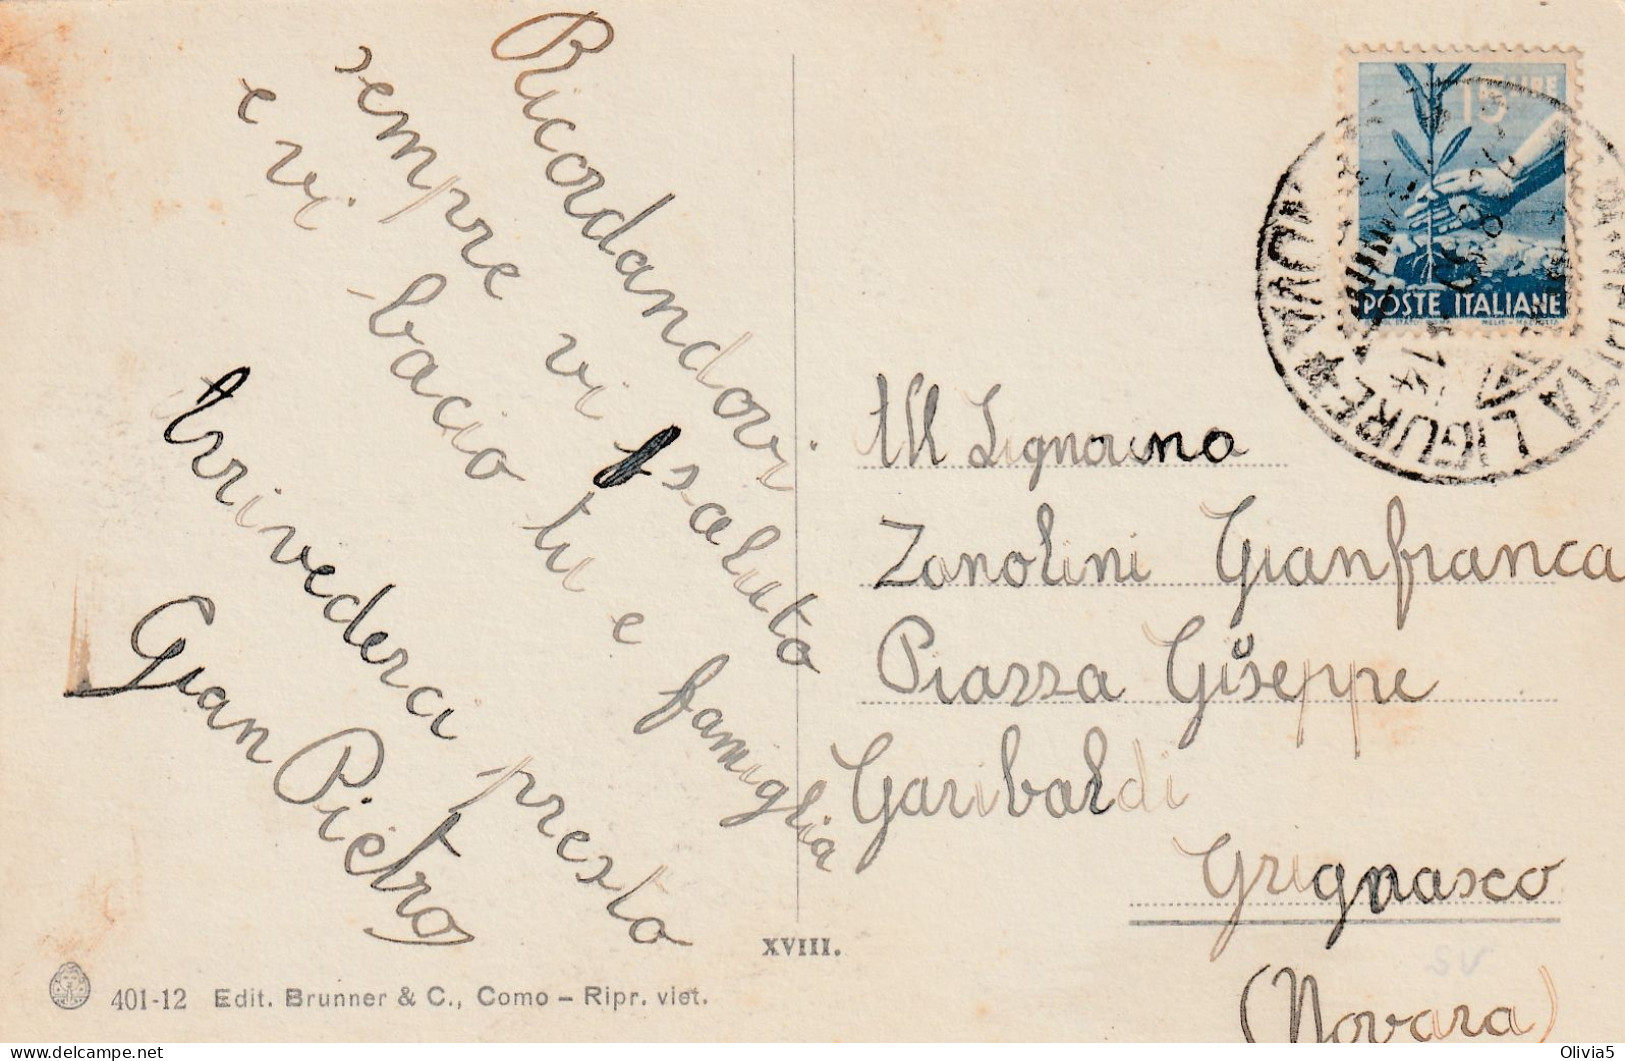 Ricordandovi
sempre vi saluto
e vi bacio tu e famiglia
Arrivederci presto
Gian Pietro
15 LIRE
POSTE ITALIANE
LIGURE
All Signorina
Zanolini Gianfranca
Piazza Giuseppe
Garibaldi
Grignasco
(Novara)
XVIII.
401-12 Edit. Brunner & C., Como – Ripr. viet.
SV
Olivia5